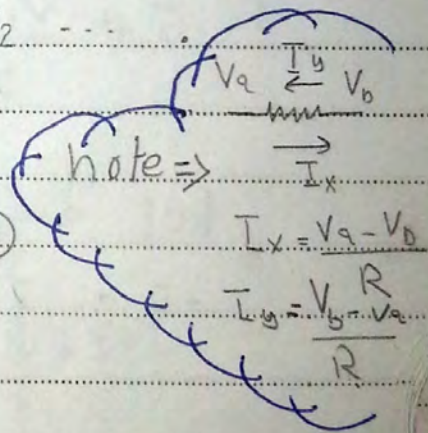 2 ----
I y
Va ← Vb
note => →
I x
I x = Va - Vb
R
I y = Vb - Va
R